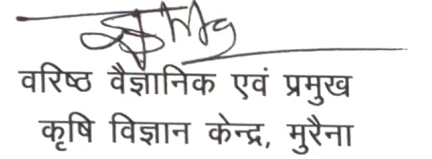 वरिष्ठ वैज्ञानिक एवं प्रमुख
कृषि विज्ञान केन्द्र, मुरैना